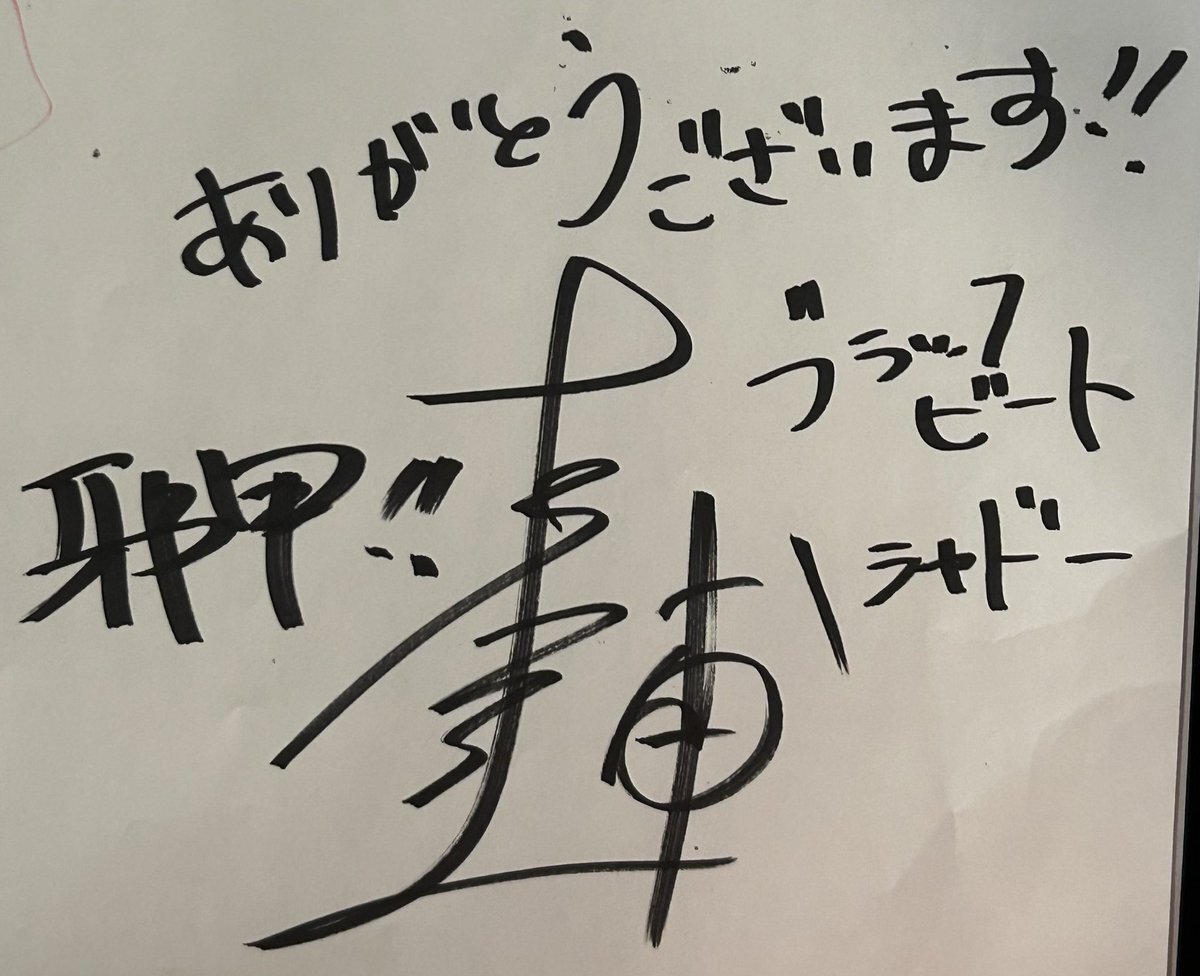 ありがとうございます!!
ブラック
ビート
シャドー
邪甲!!